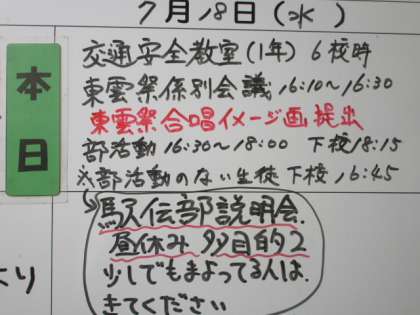 7月18日(水)
本日
交通安全教室(1年)6校時
東雲祭係別会議 16:10~16:30
東雲祭合唱イメージ画提出
部活動16:30~18:00 下校18:15
※部活動のない生徒下校16:45
駅伝部説明会.
昼休み 多目的2
少しでもまよってる人は.
きてください
より